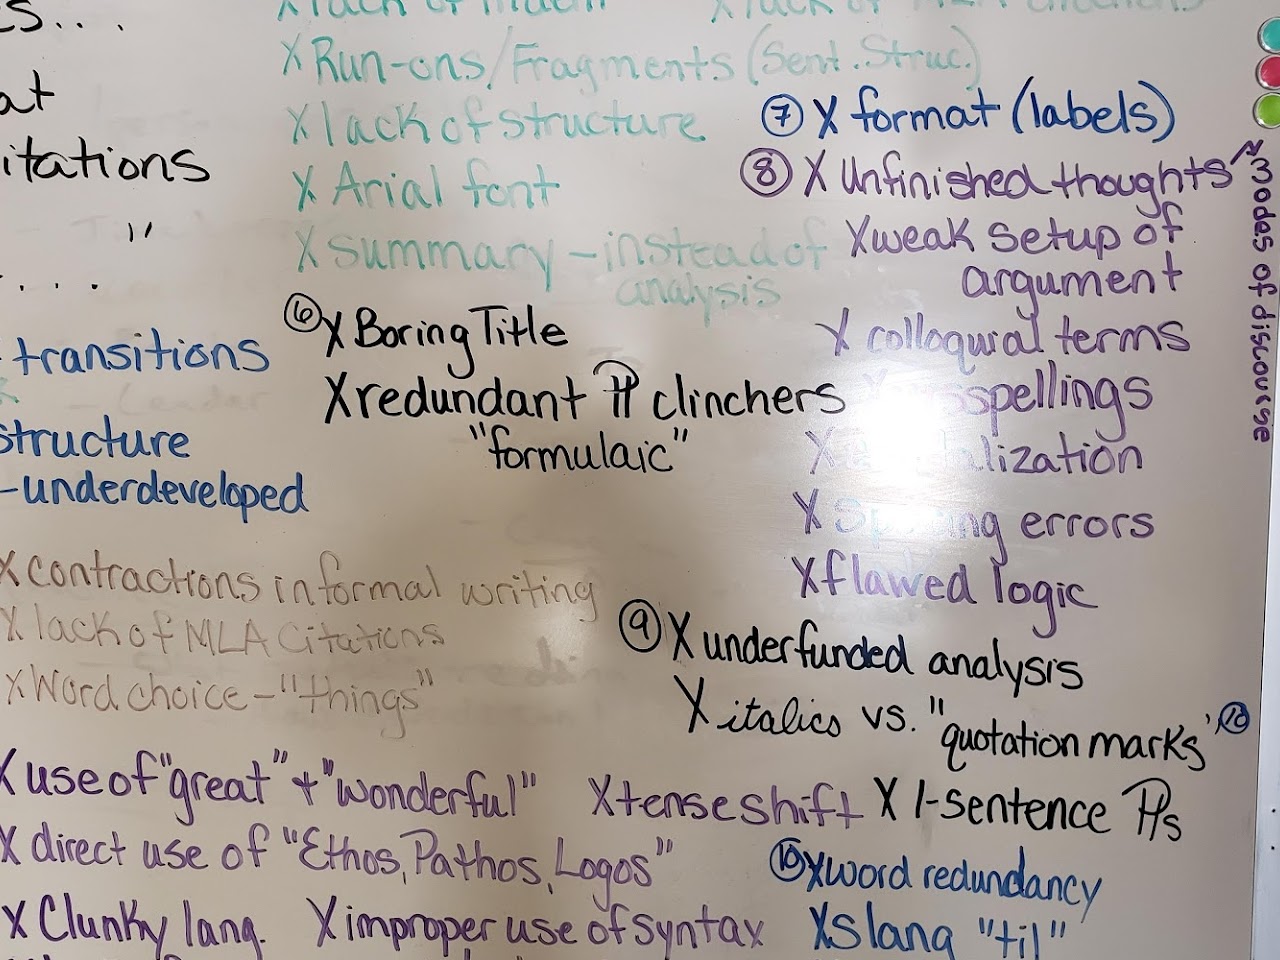 at
itations
"
....
transitions
structure
-underdeveloped
X Run-ons/Fragments (Sent. Struc.)
X lack of structure
X Arial font
X summary - instead of
analysis
⑥ X Boring Title
X redundant ¶ clinchers
"formulaic"
⑦ X format (labels)
⑧ X Unfinished thoughts
X weak setup of
argument
X colloquial terms
spellings
X
X errors
X flawed logic
modes of discourse
X contractions in formal writing
X lack of MLA Citations
X Word choice - "things"
⑨ X underfunded analysis
X italics vs. "quotation marks" ⑩
X use of "great" + "wonderful" X tense shift X 1-sentence ¶s
X direct use of "Ethos, Pathos, Logos"
⑩ X word redundancy
X Clunky lang. X improper use of syntax X slang "til"